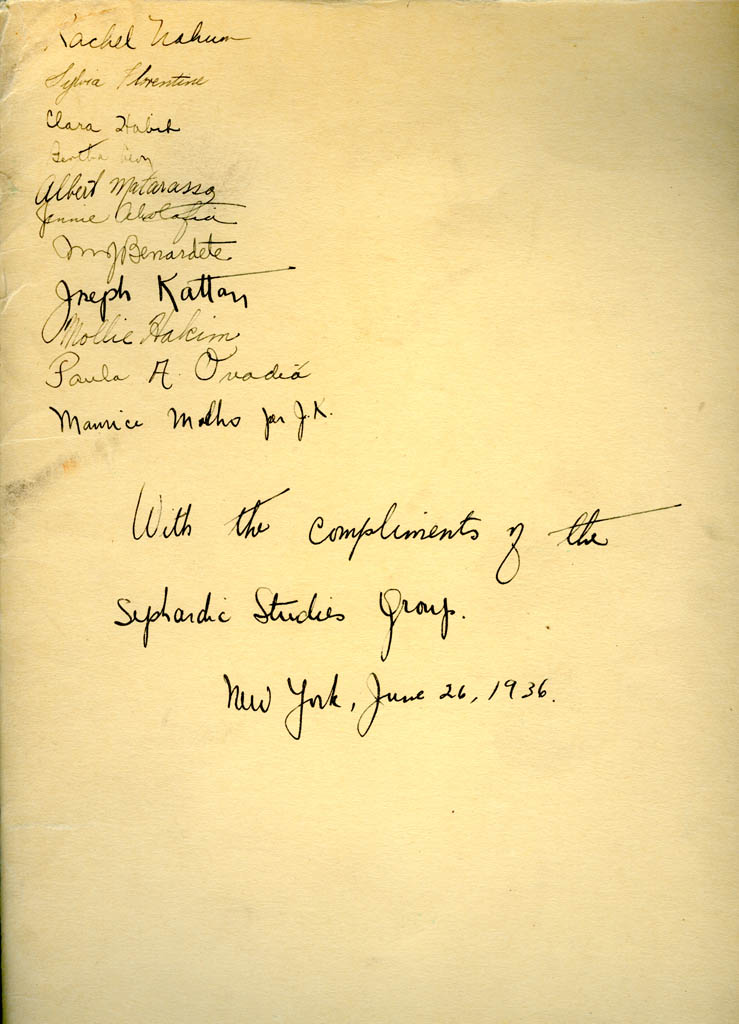 Rachel Nahum
Sylvia Florentine
Clara Habib
Bertha Levy
Albert Matarasso
Jennie Abolafia
M J Benardete
Joseph Kattan
Mollie Hakim
Paula A. Ovadia
Maurice Molho par J.K.
With the compliments of the
Sephardic Studies Group.
New York, June 26, 1936.